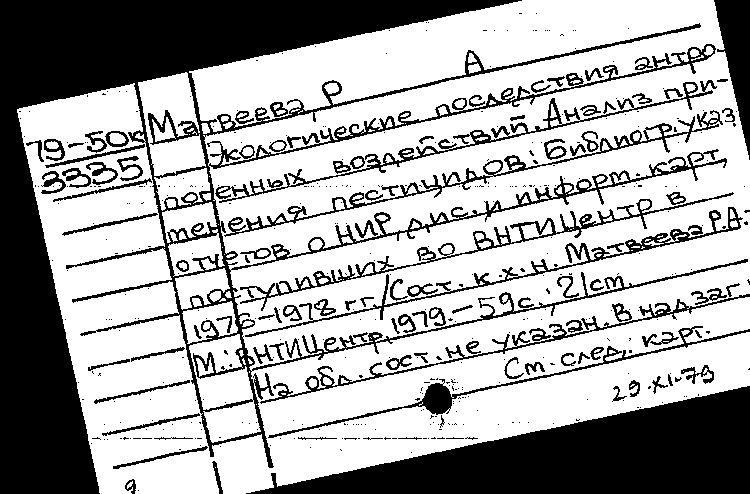 79-50к
3335
Матвеева, Р А
Экологические последствия антро-
погенных воздействий. Анализ при-
менения пестицидов: Библиогр. указ.
отчетов о НИР, дис. и информ. карт,
поступивших во ВНТИЦентр в
1976-1978 гг. / Сост. к.х.н. Матвеева Р.А.-
М.: ВНТИЦентр, 1979.-59с.; 21см.
На обл. сост. не указан. В надзаг.:
См. след. карт.
29.XI.79
9